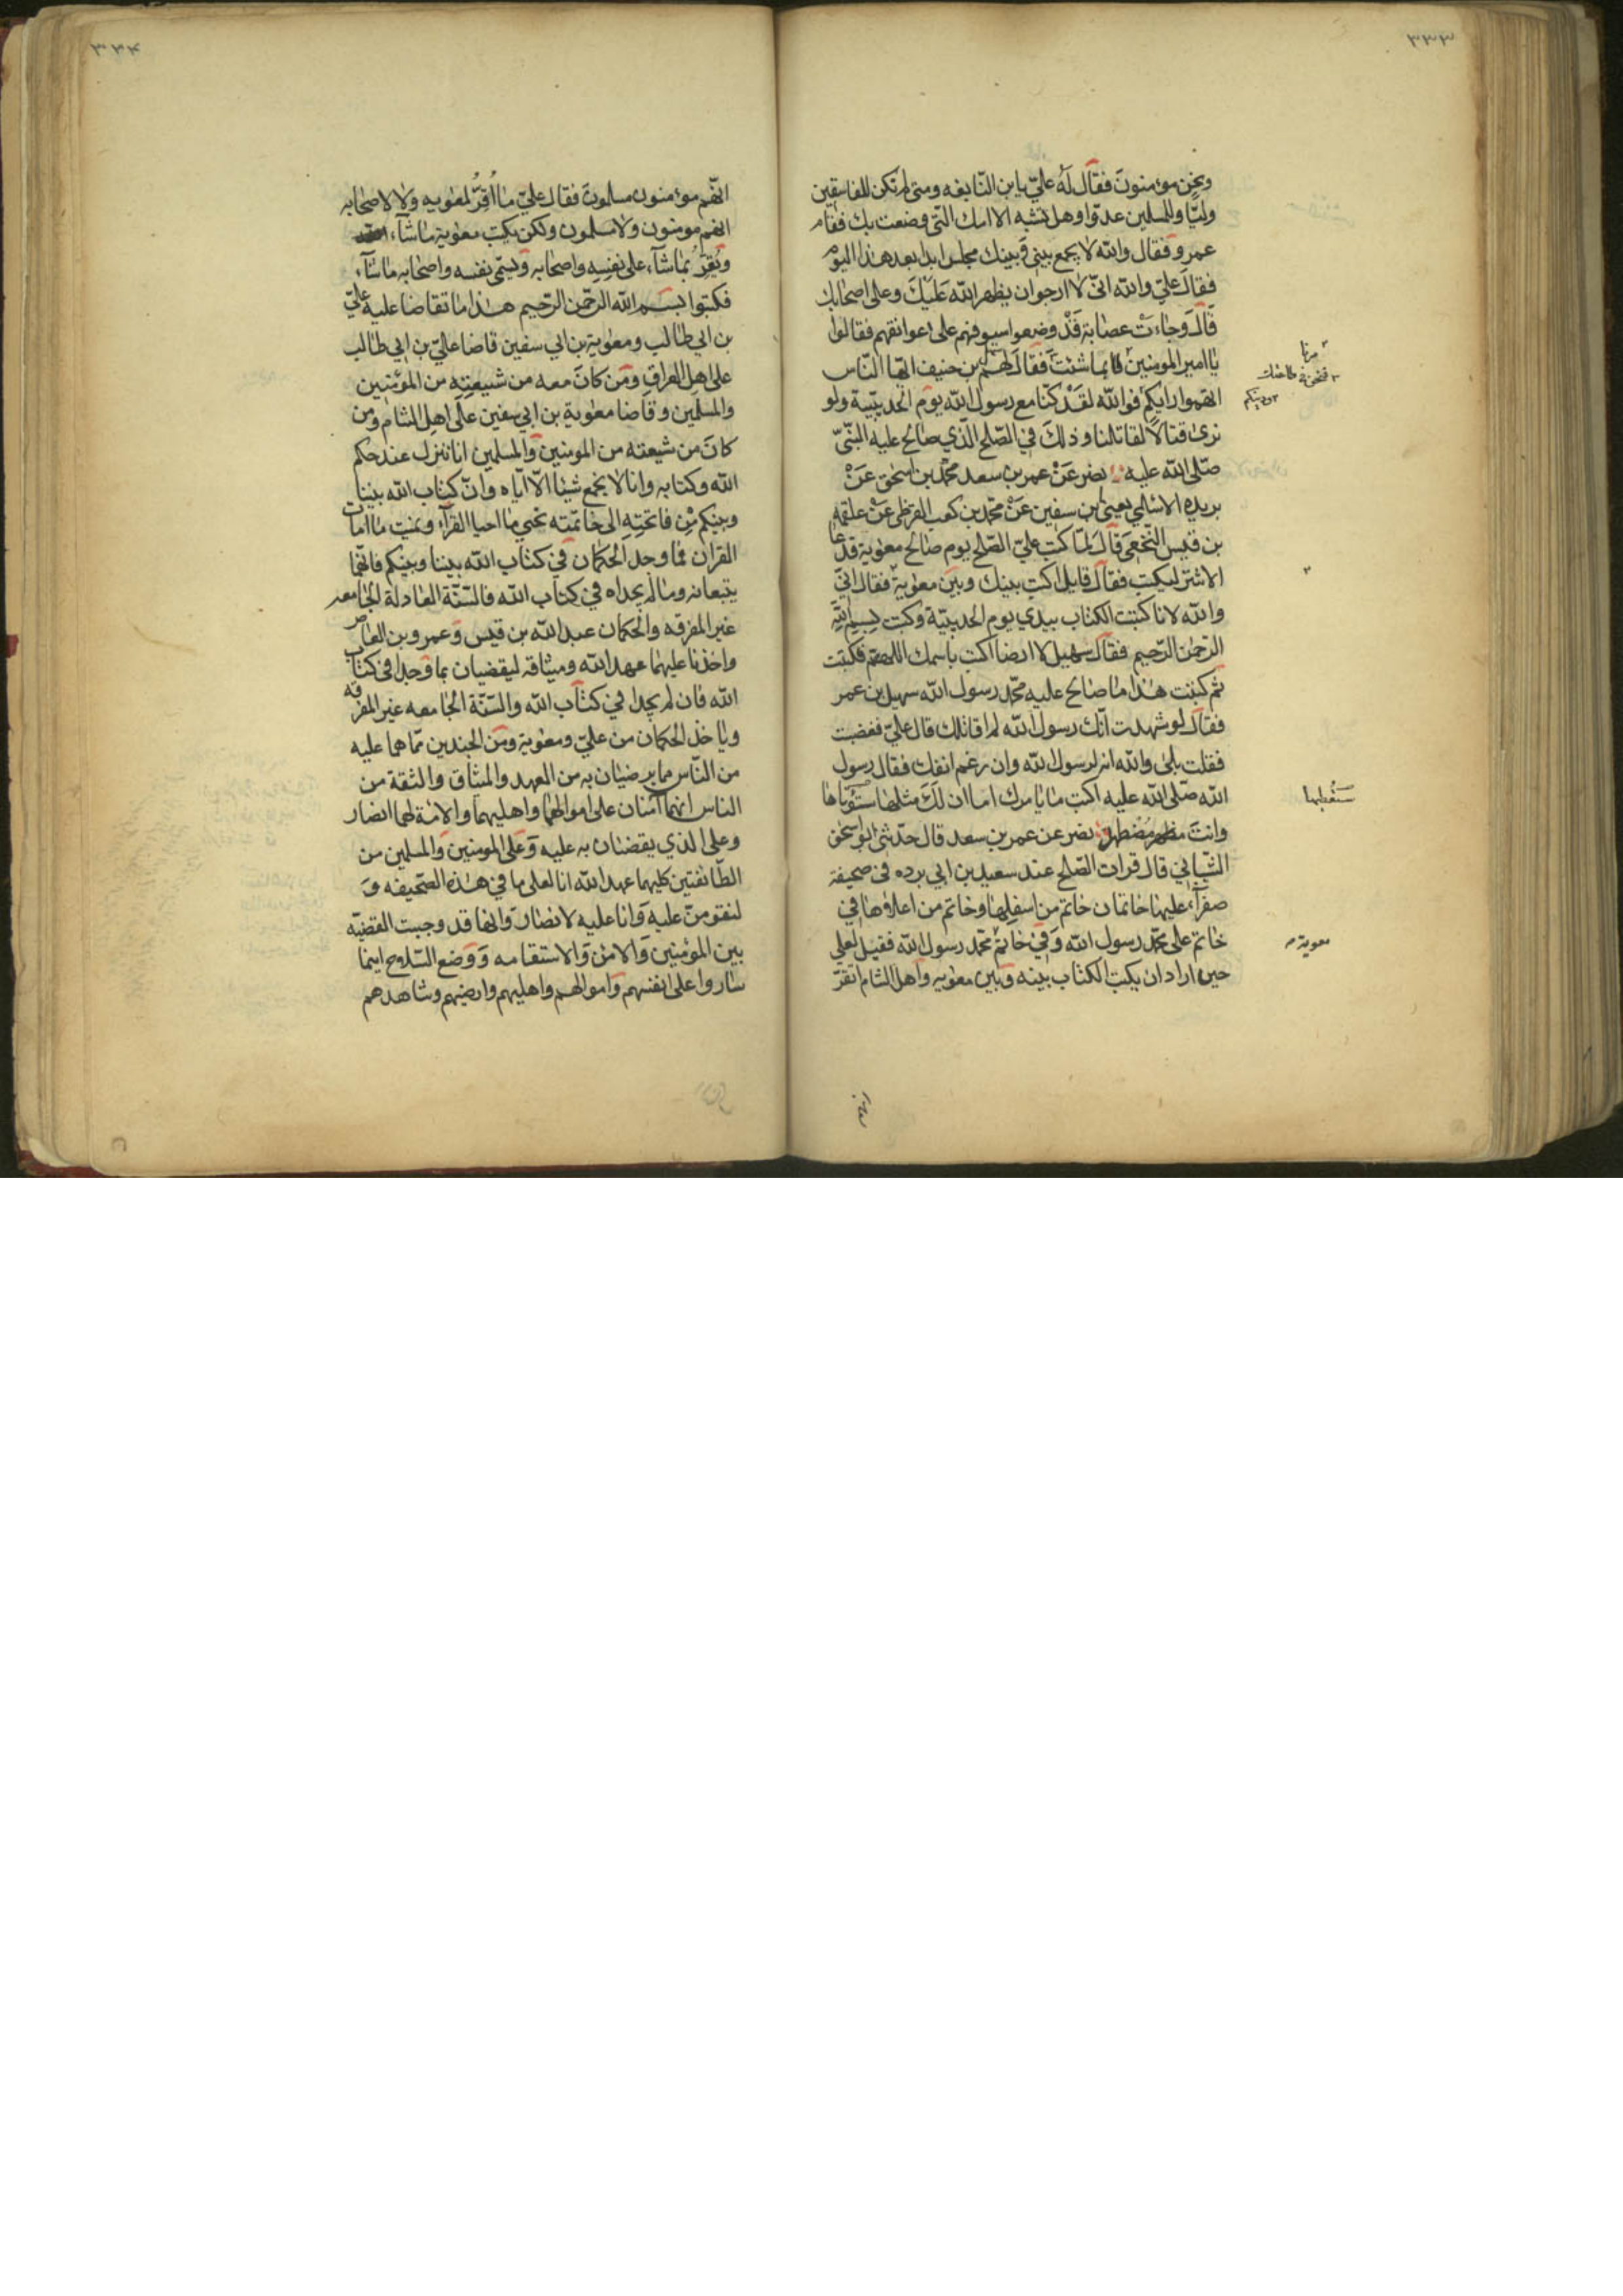 ٣٣٣
ونحن مؤمنون فقال له علي يا ابن النابغه ومتى لم تكن للفاسقين
وليا وللمسلمين عدوا وهل تشبه الا امك التي وضعت بك فقام
عمرو فقال والله لا يجمع بيني وبينك مجلس ابدا بعد هذا اليوم
فقال علي والله اني لا ارجوان يظهر الله عليك وعلى اصحابك
قال وجاءت عصابة قد وضعوا سيوفهم على اعواتقهم فقالوا
يا امير المومنين بما شئت فقال لهم بن حنيف ايها الناس
اتهموا رايكم فوالله لقد كنا مع رسول الله يوم الحديبية ولو
نرى قتالا لقاتلنا وذلك في الصلح الذي صالح عليه النبي
صلى الله عليه نصر عن عمر بن سعد محمد بن اسحق عن
بريده الاسلمي يعني بن سفين عن محمد بن كعب القرظي عن علقمه
بن قيس النخعي قال لما كتب علي الصلح يوم صالح معوية فدعا
الاشتر ليكتب فقال قايل اكتب بينك وبين معوية فقال اني
والله لانا كتبت الكتاب بيدي يوم الحديبية وكتبت بسم الله
الرحمن الرحيم فقال سهيل لا ارضا اكتب باسمك اللهم فكتبت
ثم كتبت هذا ما صالح عليه محمد رسول الله سهيل بن عمر
فقال لو شهدت انك رسول الله لم اقاتلك قال علي فغضبت
فقلت بلى والله انه لرسول الله وان رغم انفك فقال رسول
الله صلى الله عليه اكتب ما يامرك اما ان لك مثلها
ستعطيها
وانت مضطهد نصر عن عمر بن سعد قال حدثني ابو اسحق
الشيباني قال قرات الصلح عند سعيد بن ابي برده في صحيفة
صفرآء عليها خاتمان خاتم من اسفلها وخاتم من اعلاوها في
خاتم علي محمد رسول الله وفي خاتم محمد رسول الله فقيل لعلي
معوية
حين اراد ان يكتب الكتاب بينه وبين معويه واهل الشام اتقر
٣٣٤
انهم مؤمنون مسلمون فقال علي ما اقر لمعويه ولا لاصحابه
انهم مومنون ولا مسلمون ولكن يكتب معوية ما شآء
ويقر بما شآء على نفسه واصحابه ويسمى نفسه واصحابه ما شآء
فكتبوا بسم الله الرحمن الرحيم هذا ما تقاضا عليه علي
بن ابي طالب ومعوية بن ابي سفين قاضا علي بن ابي طالب
على اهل العراق ومن كان معه من شيعته من المؤمنين
والمسلمين وقاضا معوية بن ابي سفين على اهل الشام ومن
كان من شيعته من المومنين والمسلمين انا ننزل عند حكم
الله وكتابه وانا لا يجمع شيئا الا اياه وان كتاب الله بيننا
وبينكم من فاتحته الى خاتمته نحيي ما احيا القرآن ونميت ما امات
القران فما وجد الحكمان في كتاب الله بيننا وبينكم فانهما
يتبعانه وما لم يجداه في كتاب الله فالسنة العادلة الجامعه
غير المفرقه والحكمان عبد الله بن قيس وعمرو بن العاص
واخذنا عليهما عهد الله وميثاقه ليقضيان بما وجدا في كتاب
الله فان لم يجدا في كتاب الله والسنة الجامعه غير المفرقه
وياخذ الحكمان من علي ومعوية ومن الجندين مما هما عليه
من الناس مما يرضيان به من العهد والمثاق والثقة من
الناس انهما آمنان على اموالهما واهليهما والامة لهما انصار
وعلى الذي يقضيان به عليه وعلى المومنين والمسلمين من
الطائفتين كليهما عهد الله انا لعلى ما في هذه الصحيفه و
لنقومن عليه وانا عليه لانضار وانها قد وجبت القضيه
بين المؤمنين والامن والاستقامه ووضع السلاح اينما
ساروا على انفسهم واموالهم واهليهم وارضيهم وشاهدهم